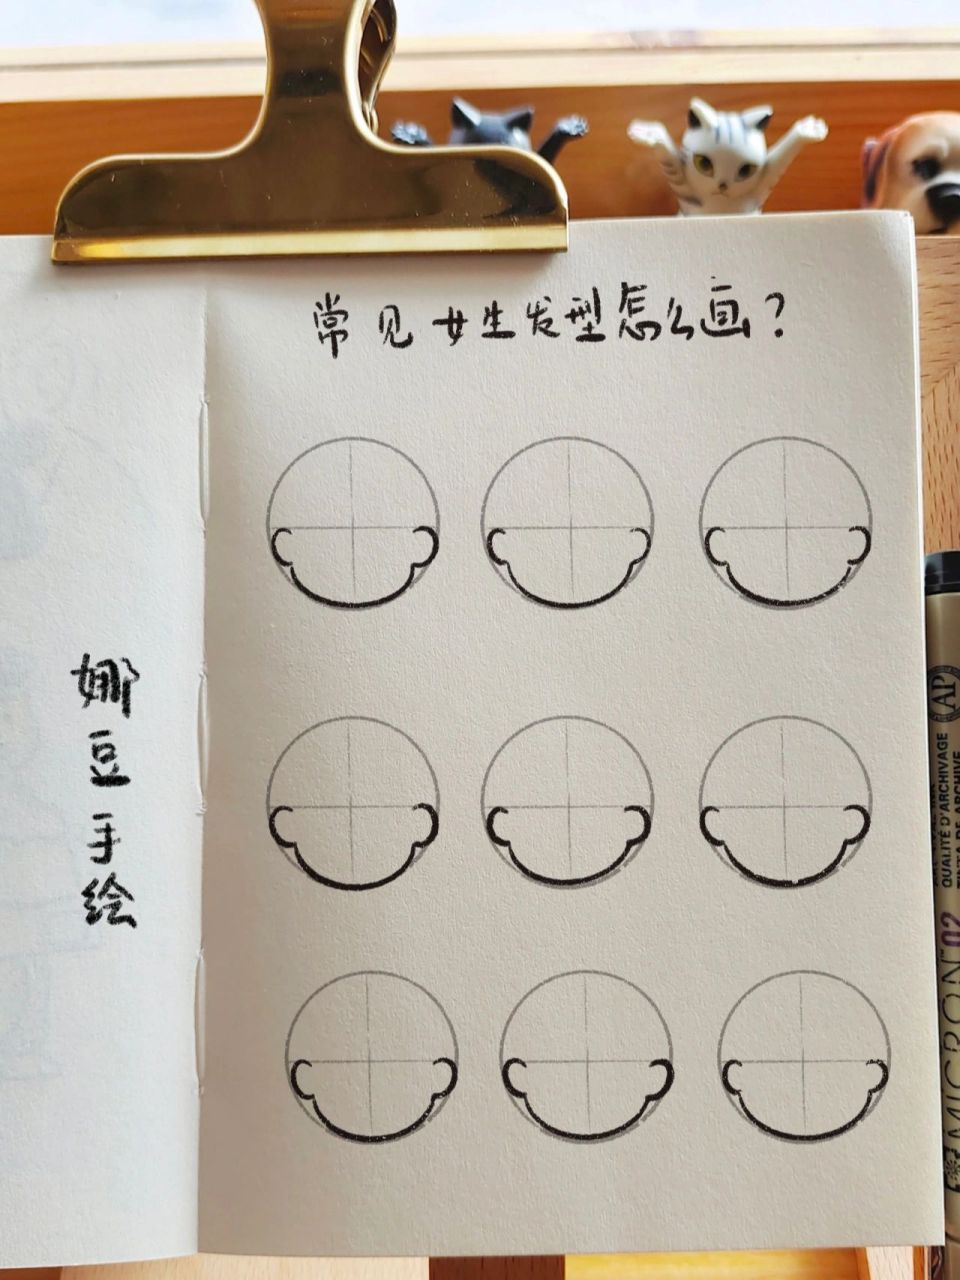 常见女生发型怎么画?
娜豆手绘
AP
QUALITÉ D'ARCHIVAGE
MICRON™ 02